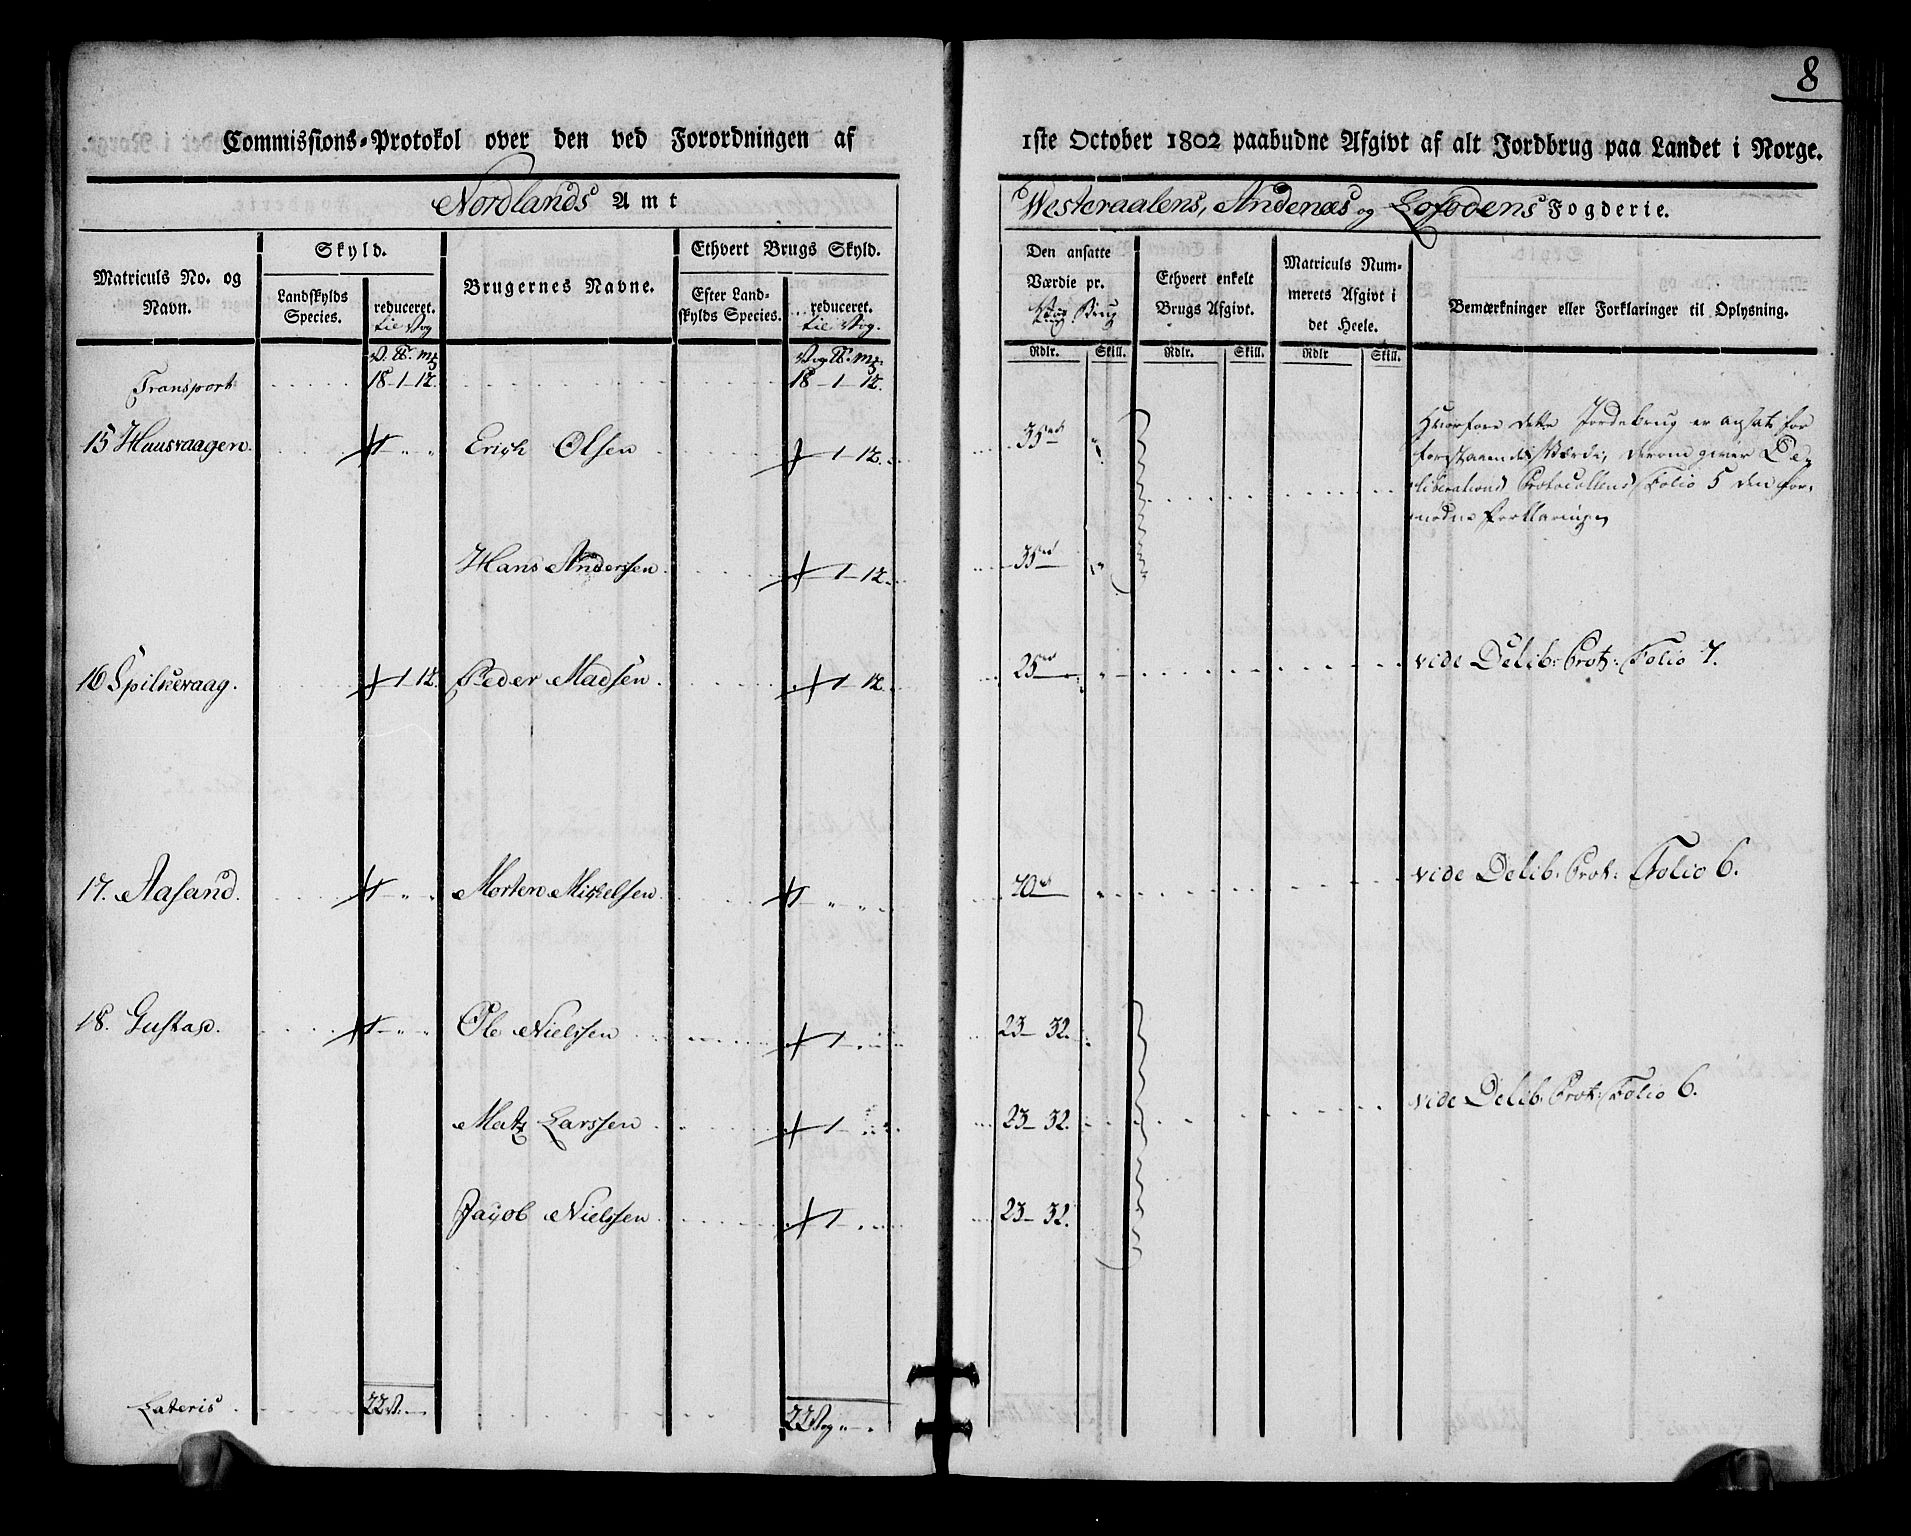 8
Commissions-Protokol over den ved Forordningen af 1ste October 1802 paabudne Afgivt af alt Jordbrug paa Landet i Norge.
Nordlands Amt
Westeraalens, Andenæs og Lofodens Fogderie.
Matriculs No. og Navn.
Skyld.
Landskylds Species.
reduceret. til Vog
Brugernes Navne.
Ethvert Brugs Skyld.
Efter Landskylds Species.
reduceret. til Vog.
Den ansatte Værdie pr. Brug
Ethvert enkelt Brugs Afgivt.
Matriculs Nummerets Afgivt i det Heele.
Bemærkninger eller Forklaringer til Oplysning.
Rdlr. Skill. Rdlr. Skill. Rdlr Skill.
Transport 18-1-12. 18-1-12.
15 Huusvaagen. 1 " " Erich Olsen 1-12. 35 "
Hvorfore dette Jordebrug er ansat for
forstaaende Værdie, derom giver De-
liberations Protocollens Folio 5 den for-
nødne Forklaring
Hans Anderssen 1-12. 35 "
16 Spilkevaag. 1 12. Peder Madsen 1-12. 25 " vide Delib: Prot: Folio 7.
17. Aasand. 1 " " Morten Mikkelsen 1 " " 40 " vide Delib: Prot: Folio 6.
18. Gustad. 1 " " Ole Nielssen 1 23-32.
Matz Larssen 1 23-32. vide Delib: Prot: Folio 6.
Jacob Nielssen 1 23-32.
Lateris 22 V. 22 Vog "